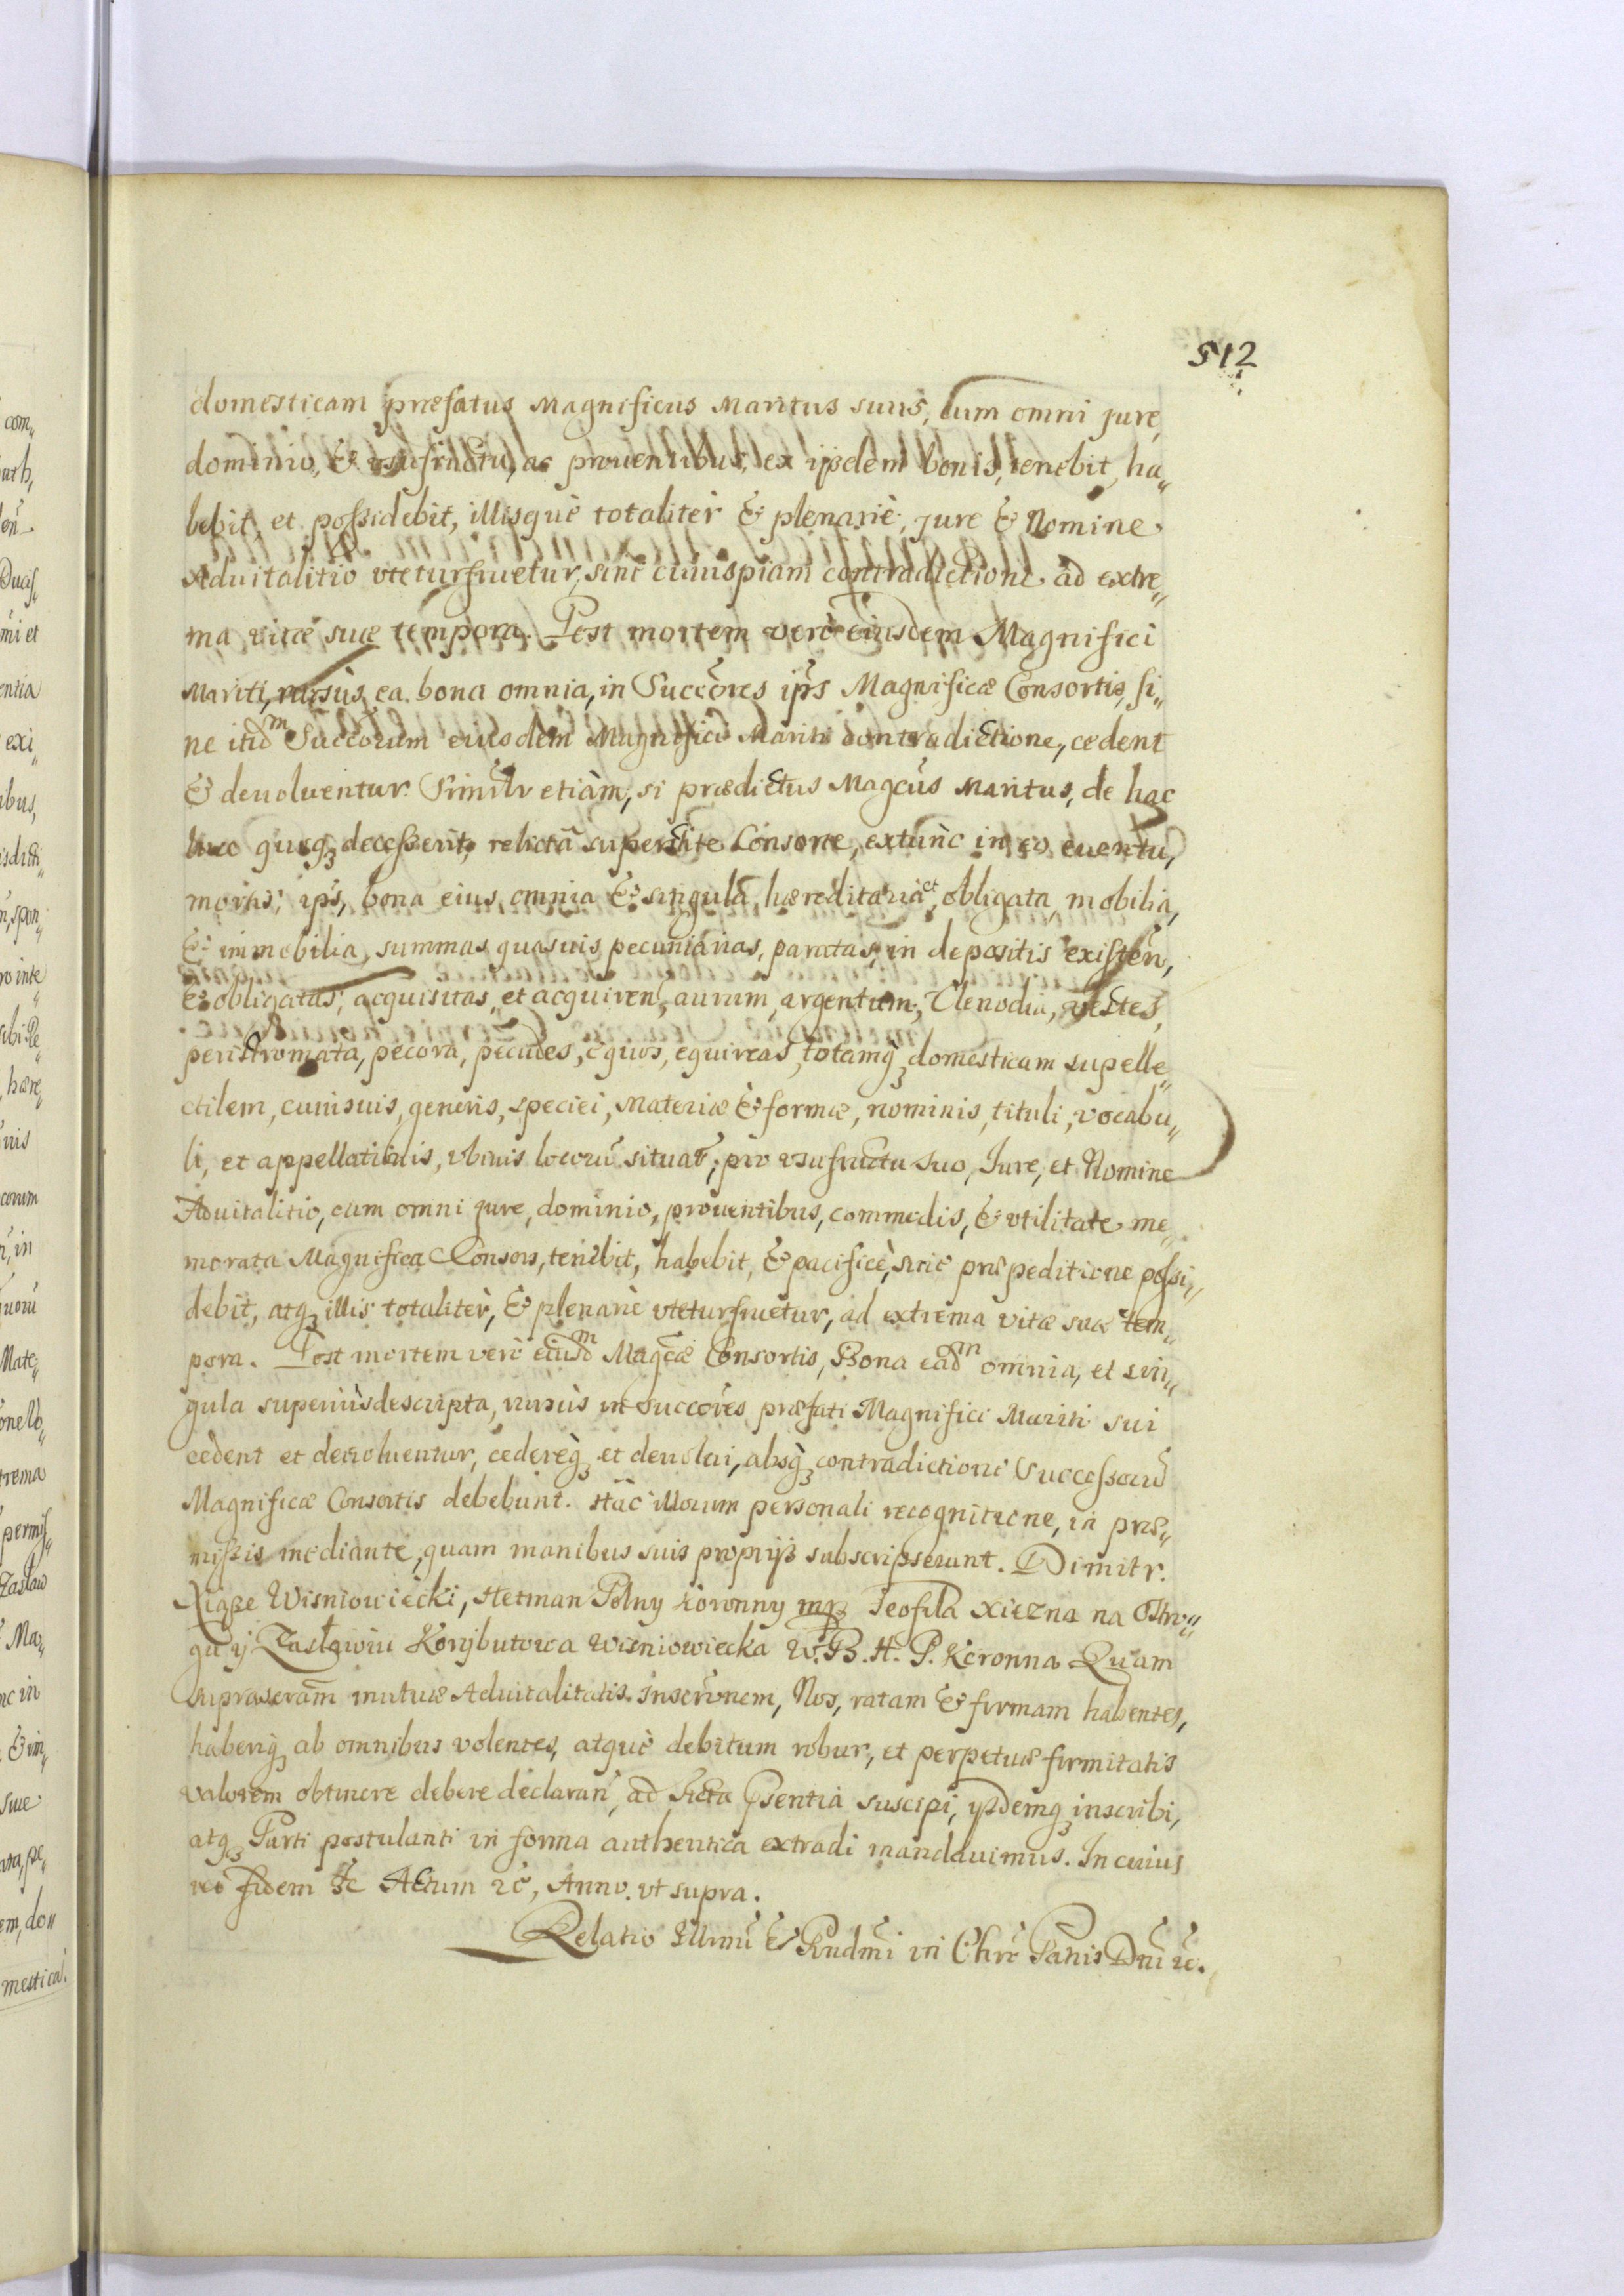 512
domesticam præfatus Magnificus Maritus suus, cum omni jure,
dominio, & usufructu, ac prouentibus, ex ijsdem bonis, tenebit, ha„
bebit, et possidebit, illisquè totalitèr & plenariè, jure & Nomine
Aduitalitio vteturfruetur, sinè cuiuspiam contradictione ad extre„
ma vitæ suæ tempora. Post mortem verò eiusdem Magnifici
Mariti, rursùs ea bona omnia, in Succ̃ores ip̃rs Magnificæ Consortis, si„
ne itid̃m Succ̃orum eiusdem Magnifici Mariti contradictione, cedent
& deuoluentur. Simil̃r etiàm, si prædictus Magc̃us Maritus, de hac
luce quoq₃ decesserit, relictâ superstite Consorte, extùnc in eo euentu,
mortis ip̃s, bona eius omnia & singula, hæreditaria et obligata, mobilia,
& immobilia, summas quasuis pecuniarias, paratas, in depositis existeñ,
& obligatas, acquisitas, et acquireñ, aurum, argentum, Clenodia, vestes,
peristromata, pecora, pecudes, equos, equireas, totamq₃ domesticam supelle„
ctilem, cuiusuis, generis, speciei, Materiæ & formæ, nominis, tituli, vocabu„
li, et appellationis, vbiuis locorũ situat̃, pro vsufructu suo, Jure, et Nomine
Aduitalitio, cum omni jure, dominio, prouentibus, commodis, & vtilitate me„
morata Magnifica Consors, tenebit, habebit, & pacificè, sinè præpeditione possi„
debit, atq₃ illis totalitèr, & plenariè vteturfruetur, ad extrema vitæ suæ tem„
pora. Post mortem verò eiusd̃m Magc̃æ Consortis, Bona ead̃m omnia, et sin„
gula superiùsdescripta, rursùs in Succ̃ores præfati Magnifici Mariti sui
cedent et deuoluentur, cedereq₃ et deuolui, absq₃ contradictione Successorũ
Magnificæ Consortis debebunt. Hac illorum personali recognitione, in præ„
missis mediante, quam manibus suis proprijs subscripserunt. Dimitr.
Xiąże Wisniowiecki, Hetman Polny Koronny mp Teofila Xiezna na Ostro„
gu ÿ Zasławiu Korÿbutowa Wisniowiecka W. B. H. P. Koronna Quam
suprascr̃am mutuæ Aduitalitatis Inscr̃onem, Nos, ratam & firmam habentes,
haberiq₃ ab omnibus volentes, atquè debitum robur, et perpetuæ firmitatis
valorem obtinere debere declarañ, ad Acta p̃sentia suscipi, ijsdemq₃ inscribi,
atq₃ Parti postulanti in forma authentica extradi mandauimus. In cuius
rei fidem &c Actum &c, Anno. vt supra.
Relatio Illm̃i & Rndm̃i in Chr̃o Patris Dñi &c.